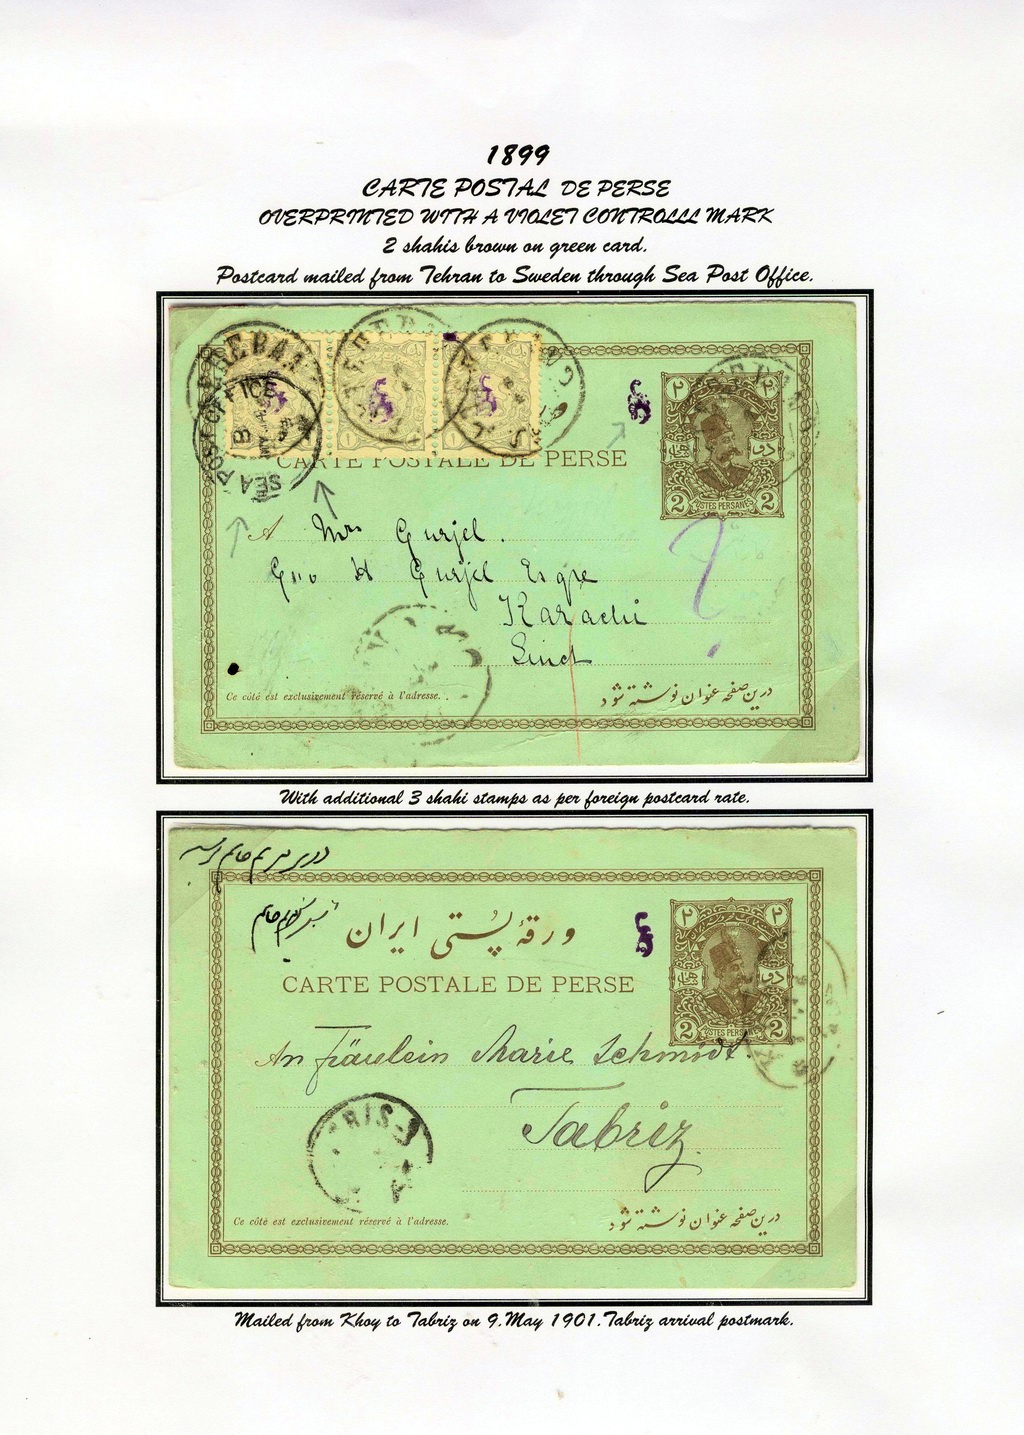 1899
CARTE POSTAL DE PERSE
OVERPRINTED WITH A VIOLET CONTROLLL MARK
2 shahis brown on green card.
Postcard mailed from Tehran to Sweden through Sea Post Office.
SEA POST OFFICE
B
CARTE POSTALE DE PERSE
۲ ۲
2 POSTES PERSANES 2
A Mrs Gurjel.
H Gurjel Esqre
Karachi
Sind
Ce côté est exclusivement réservé à l'adresse.
درین صفحه عنوان نوشته شود
With additional 3 shahi stamps as per foreign postcard rate.
ورقهٔ پستی ایران
CARTE POSTALE DE PERSE
۲ ۲
2 POSTES PERSANES 2
An Fräulein Marie Schmidt.
Tabriz
Ce côté est exclusivement réservé à l'adresse.
درین صفحه عنوان نوشته شود
Mailed from Khoy to Tabriz on 9.May 1901.Tabriz arrival postmark.